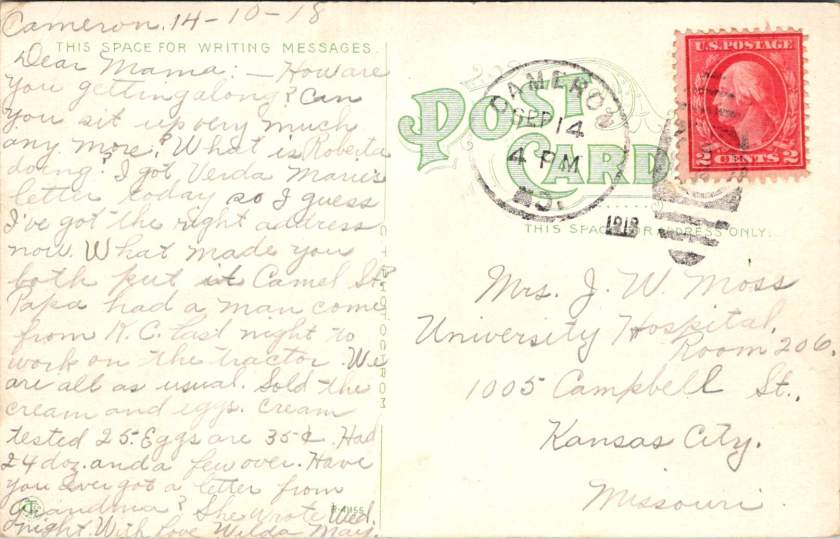 Cameron. 14-10-18
THIS SPACE FOR WRITING MESSAGES.
Dear Mama:— How are
you getting along? Can
you sit up very much
any more? What is Roberta
doing? I got Verda Marie's
letter today so I guess
I've got the right address
now. What made you
both put it Camel St.?
Papa had a man come
from K.C. last night to
work on the tractor. We
are all as usual. Sold the
cream and eggs. Cream
tested 25. Eggs are 35¢. Had
24 doz. and a few over. Have
you ever got a letter from
Grandma? She wrote Wed.
night. With Love Wilda May.
POST
CARD
CAMERON
SEP 14
4 PM
MO.
1918
U.S. POSTAGE
2 CENTS 2
THIS SPACE FOR ADDRESS ONLY.
Mrs. J. W. Moss
University Hospital,
Room 206.
1005 Campbell St.,
Kansas City.
Missouri